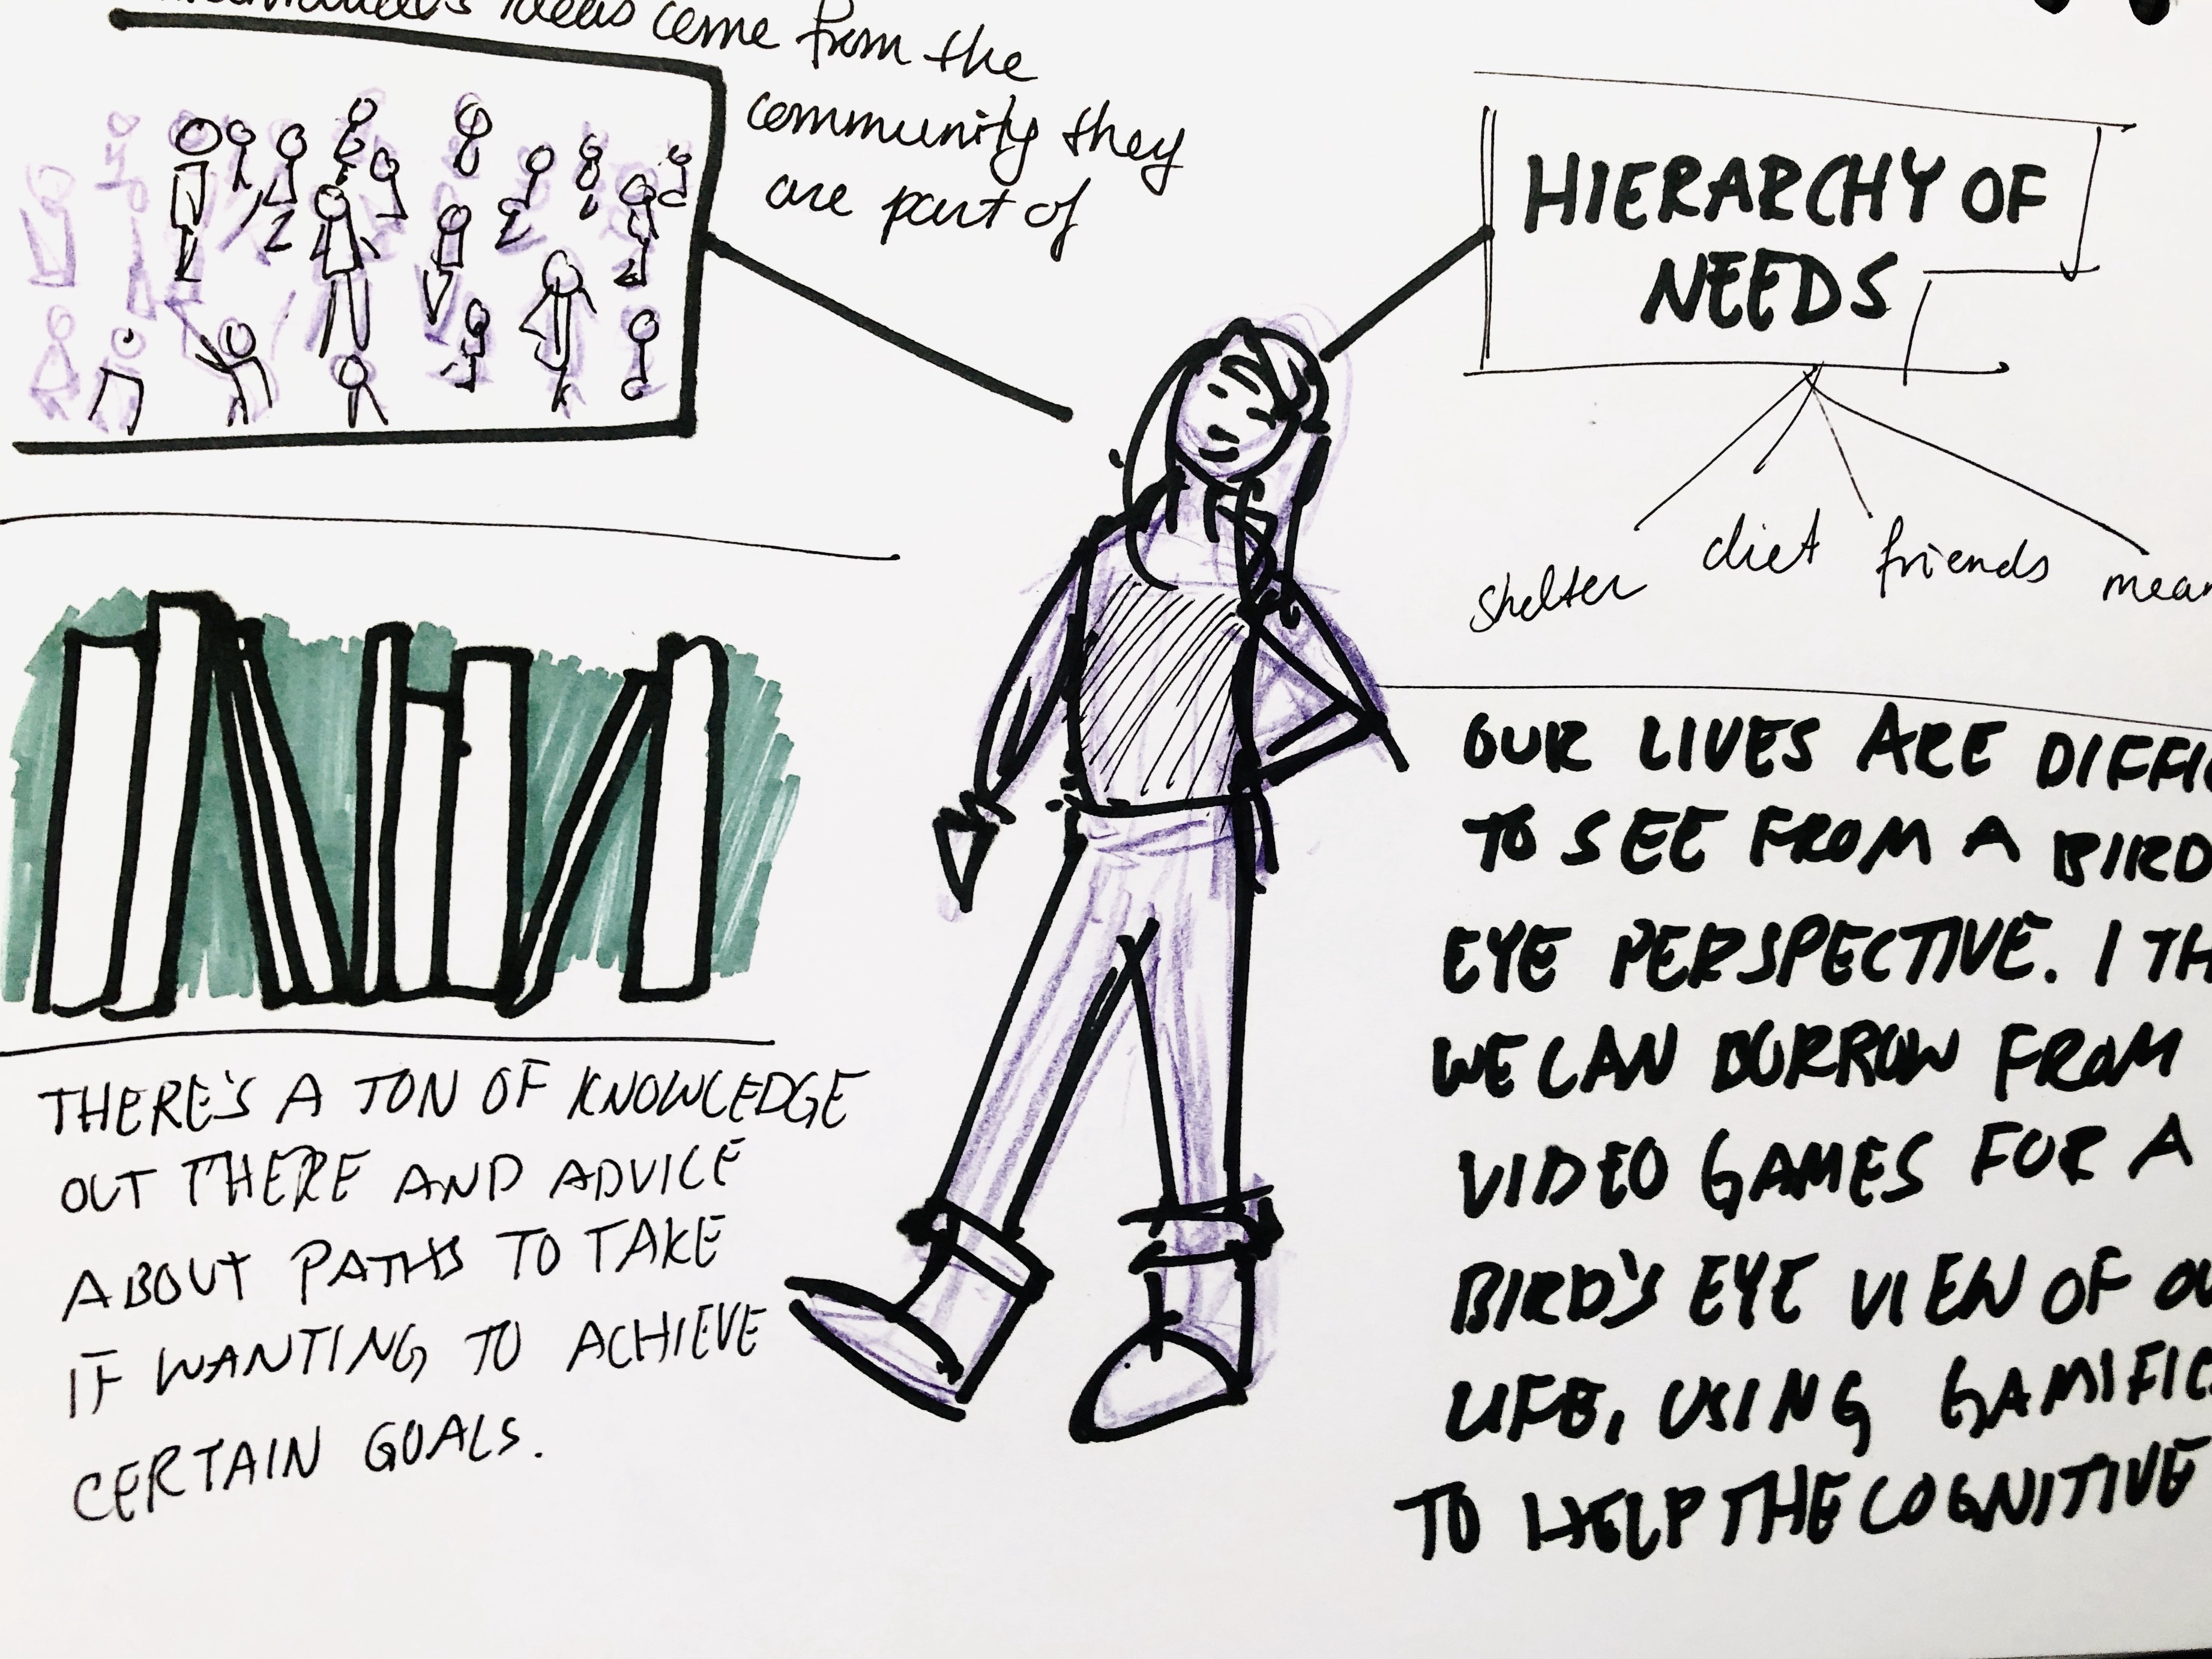 ideas come from the
community they
are part of
HIERARCHY OF
NEEDS
shelter diet friends
OUR LIVES ARE
TO SEE FROM A BIRD
EYE PERSPECTIVE. I
WE CAN BORROW FROM
VIDEO GAMES FOR A
BIRD'S EYE VIEW OF
LIFE, USING
TO HELP THE COGNITIVE
THERE'S A TON OF KNOWLEDGE
OUT THERE AND ADVICE
ABOUT PATHS TO TAKE
IF WANTING TO ACHIEVE
CERTAIN GOALS.